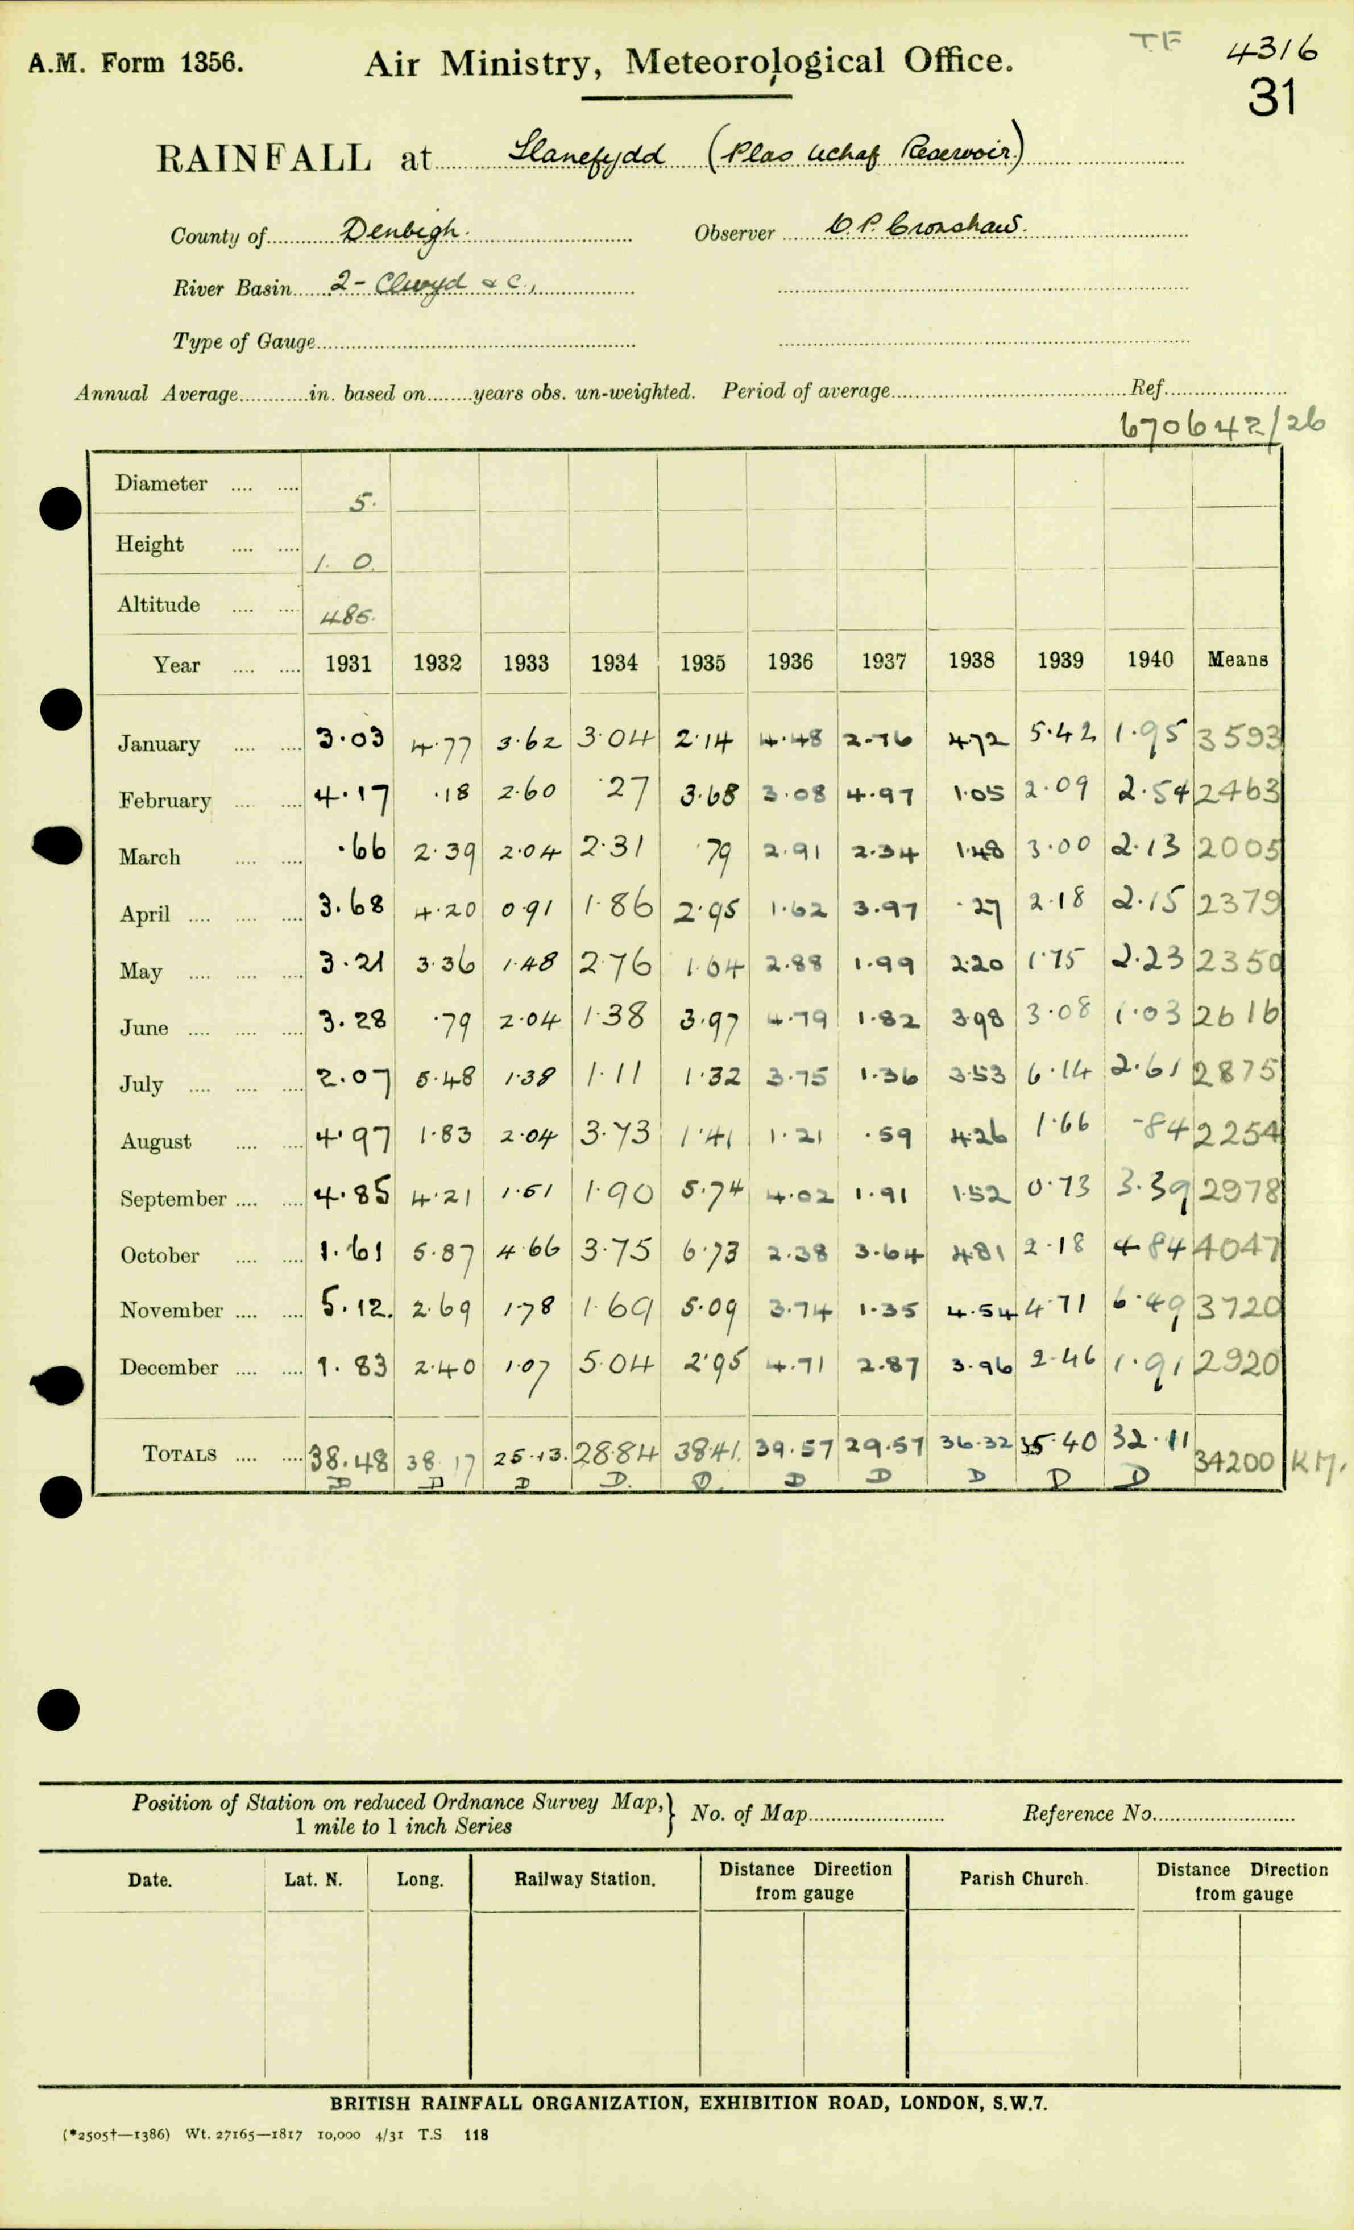 A.M. Form 1356.
Air Ministry, Meteorological Office.
TF
4316
31
RAINFALL at Llanefydd (Plas Uchaf Reservoir)
County of Denbigh. Observer O.P. Cronshaw.
River Basin 2 - Clwyd & c,
Type of Gauge
Annual Average in. based on years obs. un-weighted. Period of average Ref.
670642/26
Diameter 5.
Height 1. 0.
Altitude 485.
Year 1931 1932 1933 1934 1935 1936 1937 1938 1939 1940 Means
January 3.03 4.77 3.62 3.04 2.14 4.48 2.76 4.72 5.42 1.95 3593
February 4.17 .18 2.60 .27 3.68 3.08 4.97 1.05 2.09 2.54 2463
March .66 2.39 2.04 2.31 .79 2.91 2.34 1.48 3.00 2.13 2005
April 3.68 4.20 0.91 1.86 2.95 1.62 3.97 .27 2.18 2.15 2379
May 3.21 3.36 1.48 2.76 1.64 2.88 1.99 2.20 1.75 2.23 2350
June 3.28 .79 2.04 1.38 3.97 4.79 1.82 3.98 3.08 1.03 2616
July 2.07 5.48 1.38 1.11 1.32 3.75 1.36 3.53 6.14 2.61 2875
August 4.97 1.83 2.04 3.73 1.41 1.21 .59 4.26 1.66 .84 2254
September 4.85 4.21 1.51 1.90 5.74 4.02 1.91 1.52 0.73 3.39 2978
October 1.61 5.87 4.66 3.75 6.73 2.38 3.64 4.81 2.18 4.84 4047
November 5.12. 2.69 1.78 1.69 5.09 3.74 1.35 4.54 4.71 6.49 3720
December 1.83 2.40 1.07 5.04 2.95 4.71 2.87 3.96 2.46 1.91 2920
TOTALS 38.48 38.17 25.13. 28.84 38.41. 39.57 29.57 36.32 35.40 32.11 34200 KM.
D D D D. D. D D D D D
Position of Station on reduced Ordnance Survey Map, No. of Map Reference No.
1 mile to 1 inch Series
Date. Lat. N. Long. Railway Station. Distance Direction from gauge Parish Church. Distance Direction from gauge
BRITISH RAINFALL ORGANIZATION, EXHIBITION ROAD, LONDON, S.W.7.
(*2505†—1386) Wt. 27165—1817 10,000 4/31 T.S 118